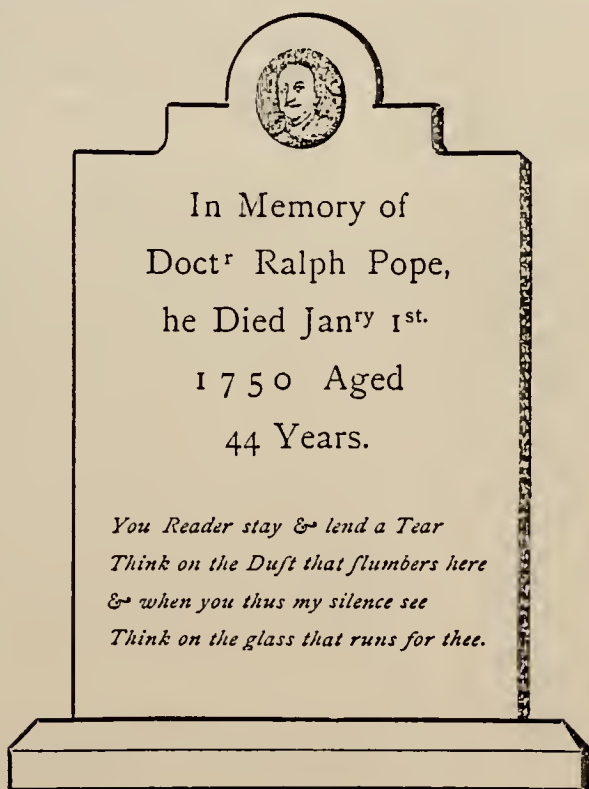 In Memory of
Doctʳ Ralph Pope,
he Died Janʳʸ 1ˢᵗ·
1750 Aged
44 Years.
You Reader stay & lend a Tear
Think on the Duſt that ſlumbers here
& when you thus my silence see
Think on the glass that runs for thee.